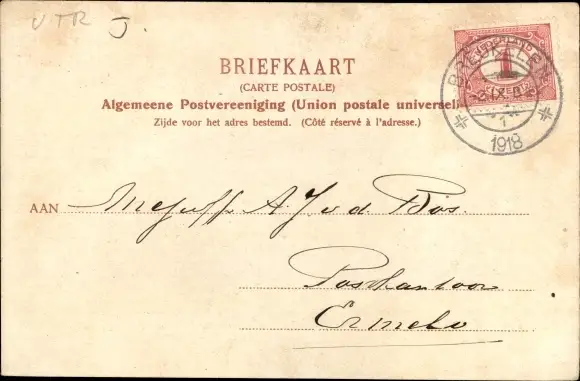 UTR J.
BRIEFKAART
(CARTE POSTALE)
Algemeene Postvereeniging (Union postale universel
Zijde voor het adres bestemd. (Côté réservé à l'adresse.)
BREUKELEN
1
1918
AAN Mejuff. A. J. v. d. Bos.
Postkantoor
Ermelo